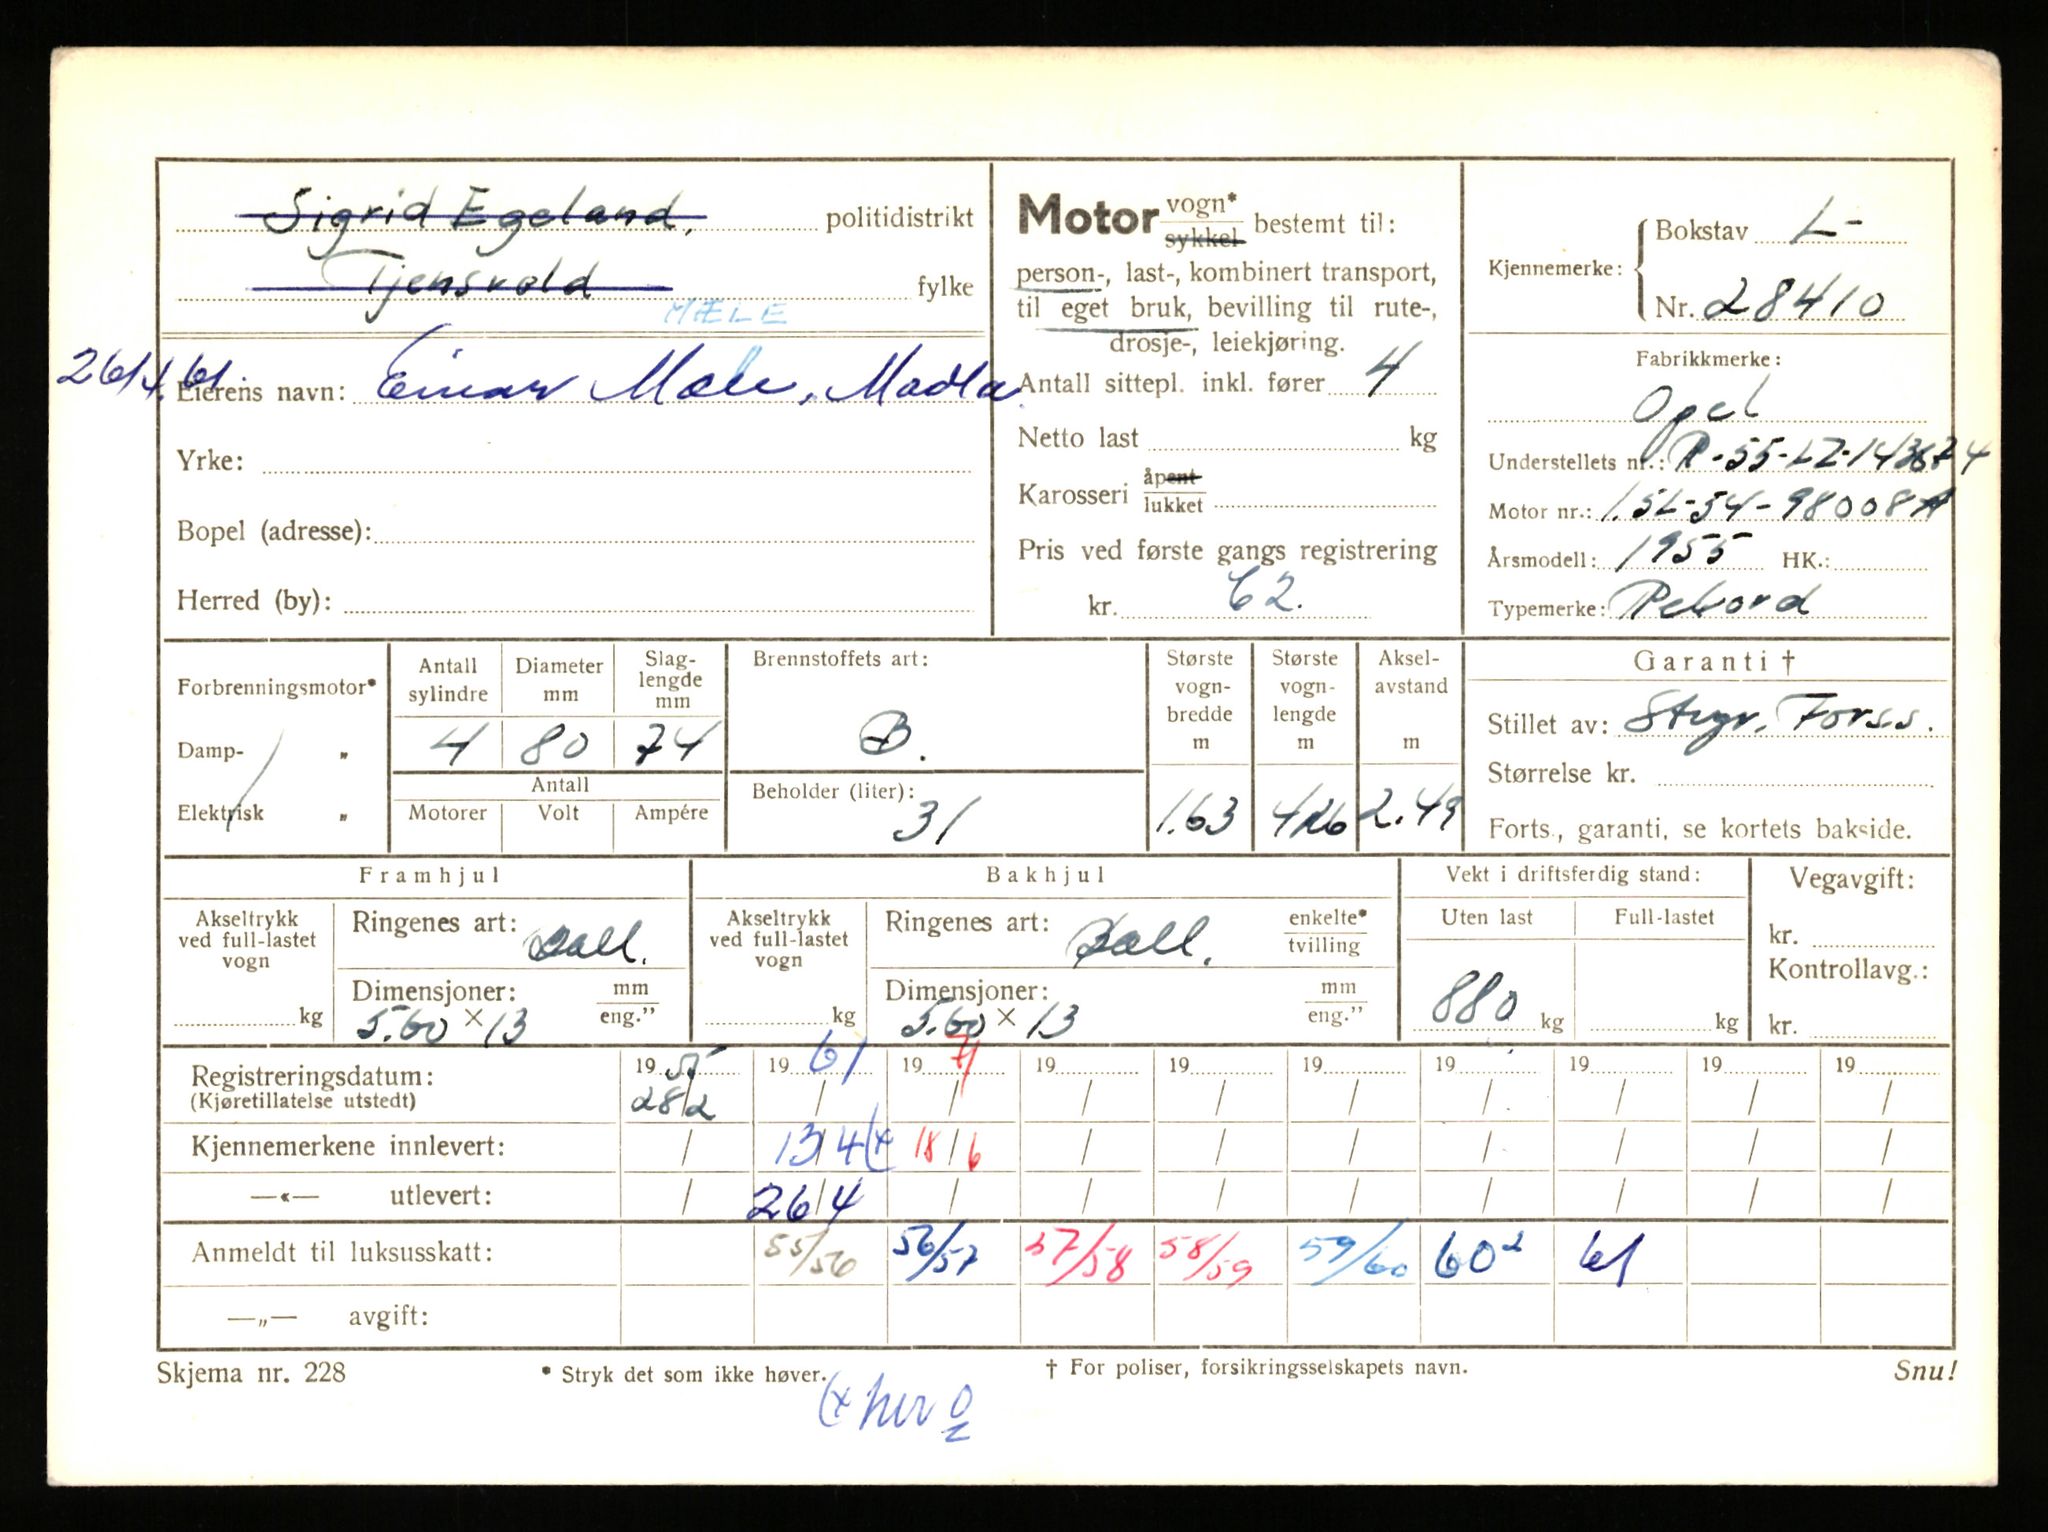 Sigrid Egeland, politidistrikt
Tjensvold fylke
MÆLE
26/4.61. Eierens navn: Einar Mæle, Madla
Yrke:
Bopel (adresse):
Herred (by):
Motor vogn* sykkel bestemt til:
person-, last-, kombinert transport,
til eget bruk, bevilling til rute-,
drosje-, leiekjøring.
Antall sittepl. inkl. fører 4
Netto last kg
Karosseri åpent lukket
Pris ved første gangs registrering
kr. 62.
Kjennemerke: Bokstav L-
Nr. 28410
Fabrikkmerke:
Opel
Understellets nr.: R-55-LZ-143674
Motor nr.: 1.5L-54-98008A
Årsmodell: 1955 HK.:
Typemerke: Rekord
Forbrenningsmotor*
Damp- „
Elektrisk „
Antall sylindre Diameter mm Slag-lengde mm
4 80 74
Antall
Motorer Volt Ampére
Brennstoffets art:
B.
Beholder (liter):
31
Største vogn-bredde m 1.63
Største vogn-lengde m 426
Aksel-avstand m 2.49
Garanti †
Stillet av: Stvgr. Forss.
Størrelse kr.
Forts., garanti, se kortets bakside.
Framhjul
Akseltrykk ved full-lastet vogn
kg
Ringenes art: Ball.
Dimensjoner: mm eng.”
5.60 × 13
Bakhjul
Akseltrykk ved full-lastet vogn
kg
Ringenes art: Ball. enkelte* tvilling
Dimensjoner: mm eng.”
5.60 × 13
Vekt i driftsferdig stand:
Uten last Full-lastet
880 kg kg
Vegavgift:
kr.
Kontrollavg.:
kr.
Registreringsdatum: 1955 1961 1971 19 19 19 19 19 19 19
(Kjøretillatelse utstedt) 28/2 / / / / / / / / /
Kjennemerkene innlevert: / 13/4 (x 18/6 / / / / / / /
—«— utlevert: / 26/4 / / / / / / / /
Anmeldt til luksusskatt: 55/56 56/57 57/58 58/59 59/60 60² 61
—„— avgift:
Skjema nr. 228 * Stryk det som ikke høver. † For poliser, forsikringsselskapets navn. Snu!